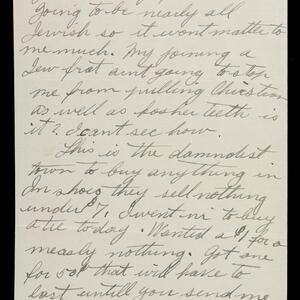 going to be nearly all
Jewish so it wont matter to
me much. My joining a
Jew frat aint going to stop
me from pulling Christian
as well as kosher teeth is
it? I cant see how.
This is the damndist
town to buy anything in
In shoes they sell nothing
under $7. I went in to buy
a tie today. Wanted a $1, for a
mecaly nothing. Got one
for 50¢ that will have to
last untill you send me